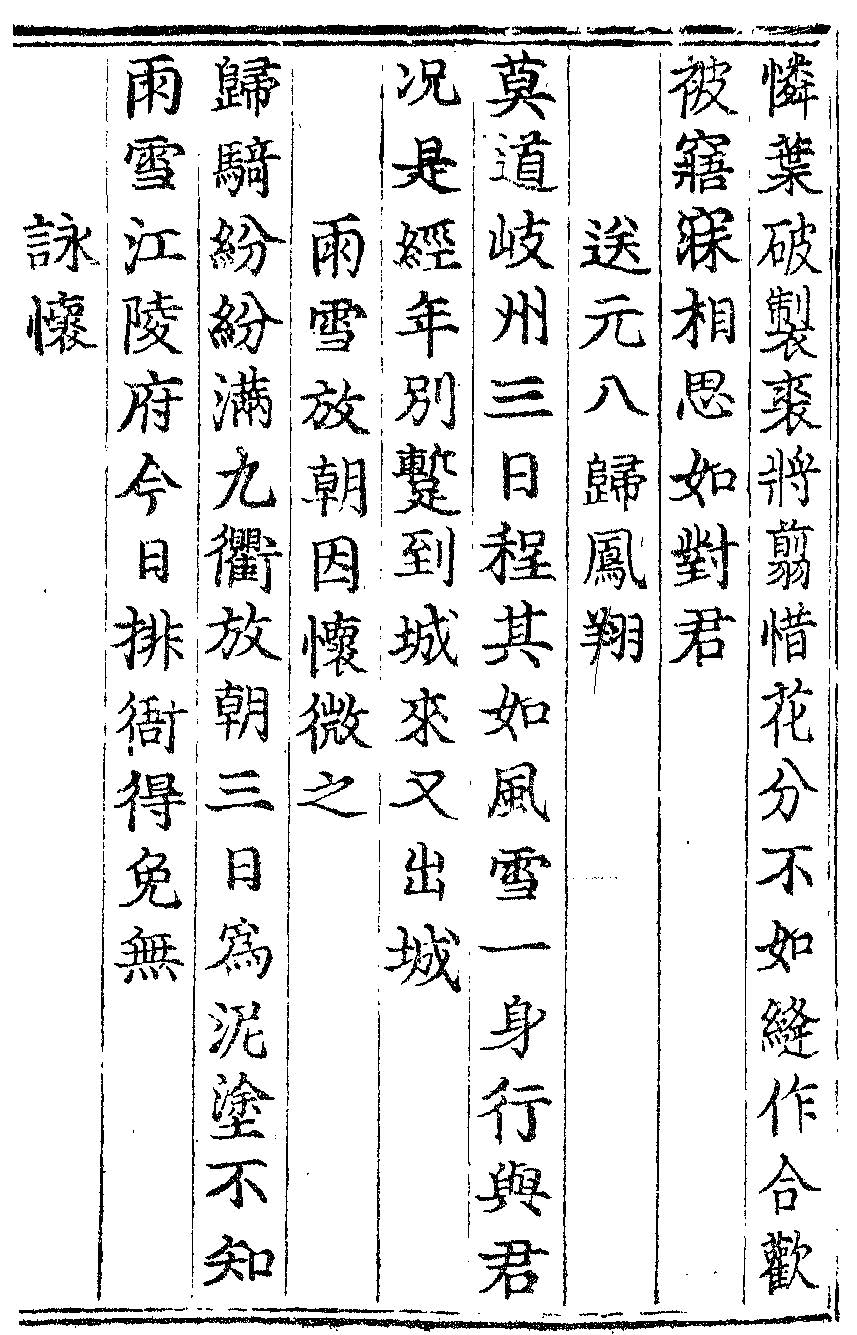 憐葉破製裘將翦惜花分不如縫作合歡
被寤寐相思如對君
送元八歸鳳翔
莫道岐州三日程其如風雪一身行與君
况是經年別蹔到城來又出城
雨雪放朝因懷微之
歸騎紛紛滿九衢放朝三日爲泥塗不知
雨雪江陵府今日排衙得免無
詠懷